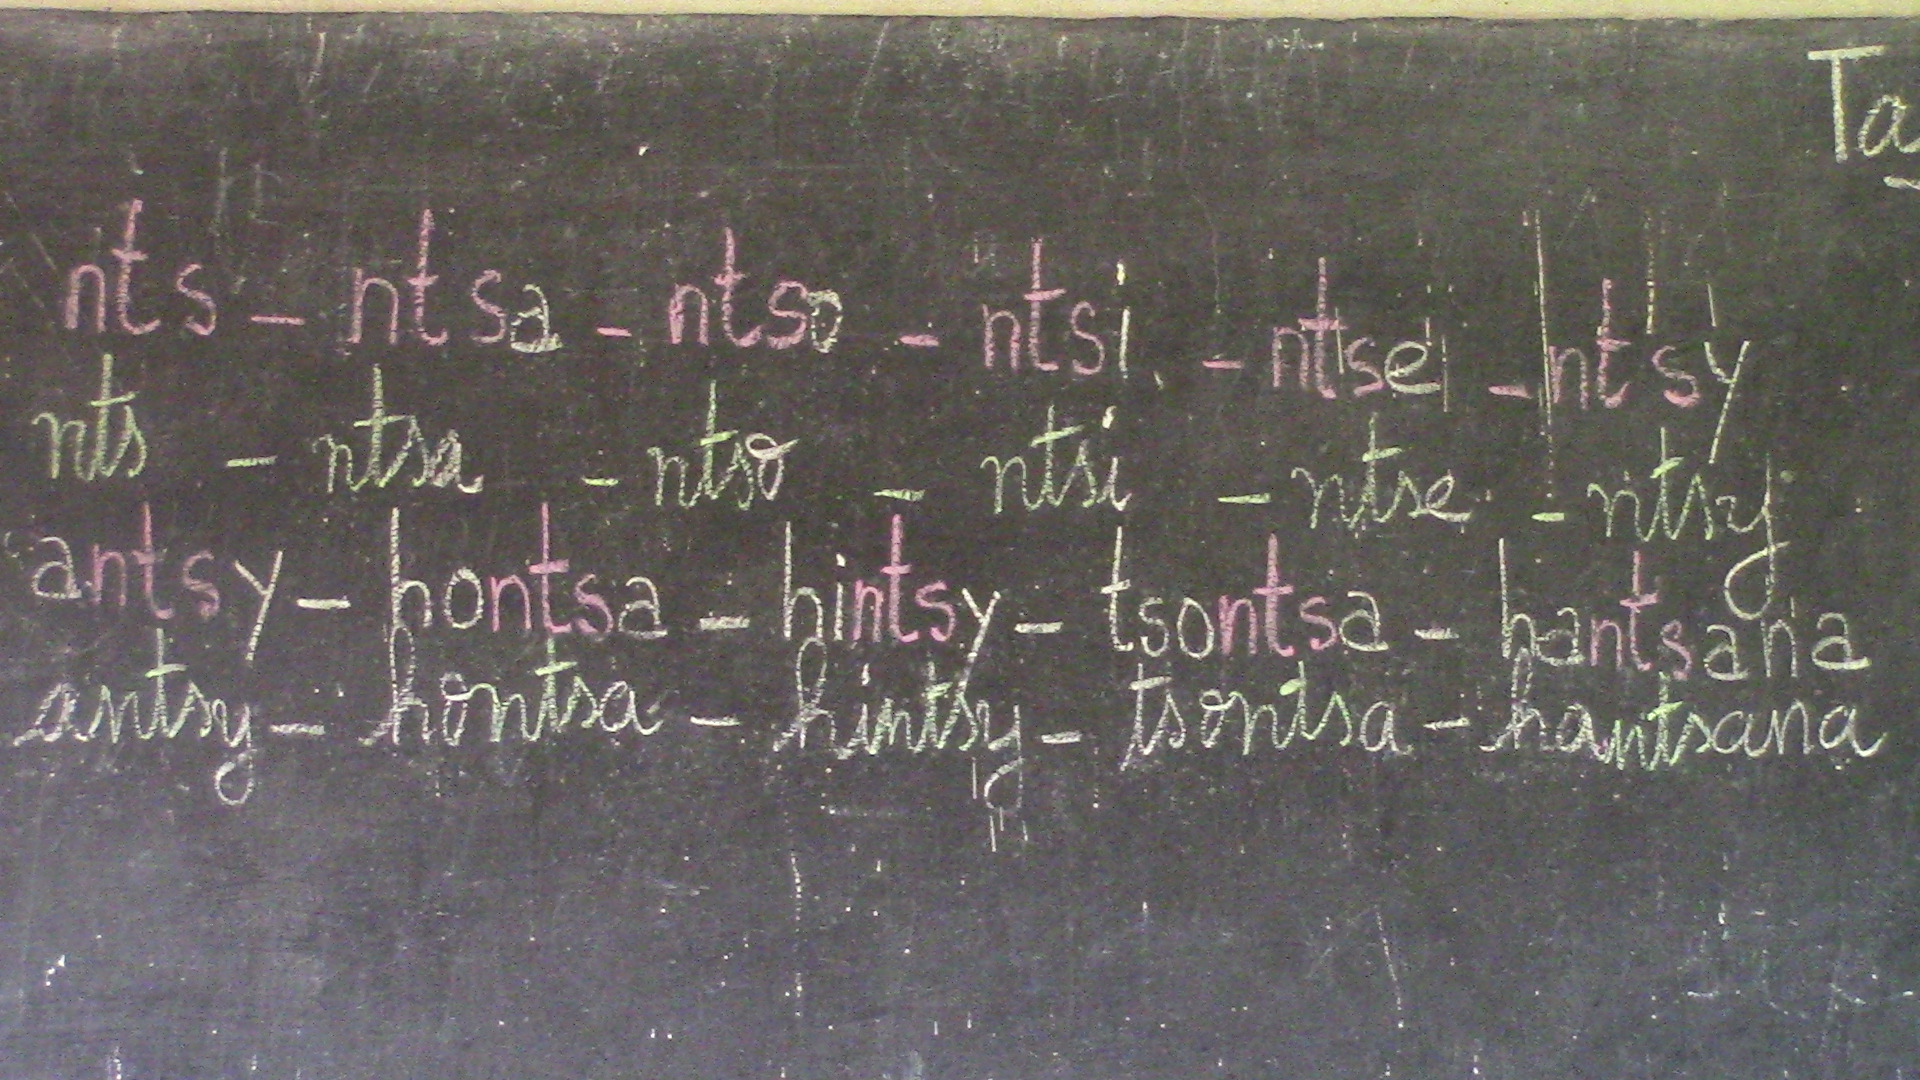 Ta
nts - ntsa - ntso - ntsi - ntse - ntsy
nts - ntsa - ntso - ntsi - ntse - ntsy
antsy - hontsa - hintsy - tsontsa - hantsana
antsy - hontsa - hintsy - tsontsa - hantsana